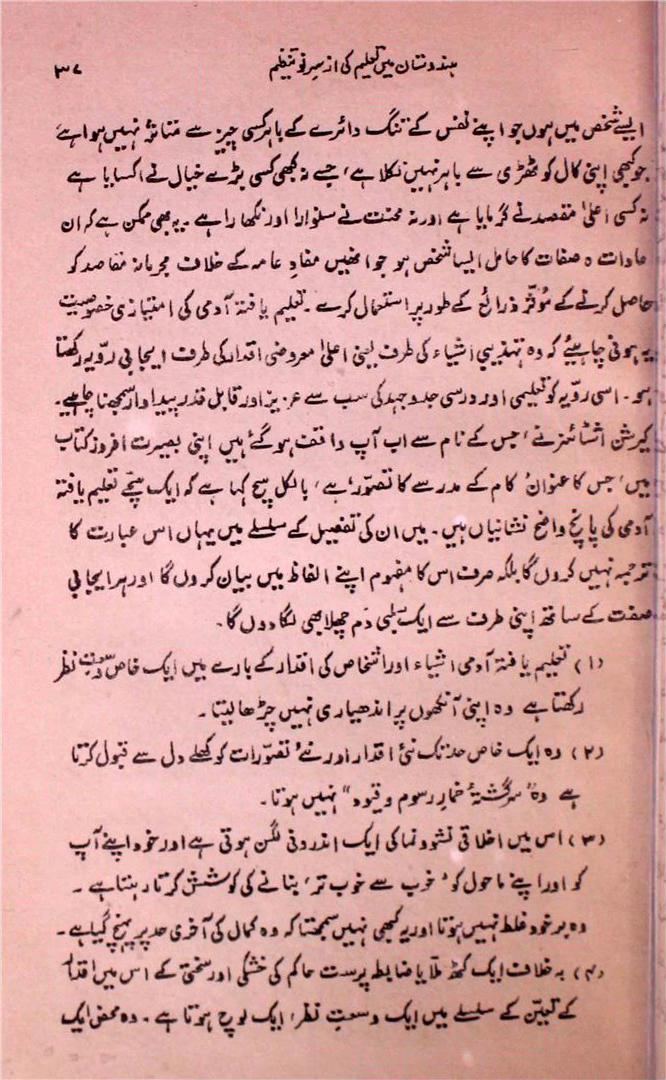 ہندوستان میں تعلیم کی ازسرِنو تنظیم ۳۷
ایسے شخص میں ہوں جو اپنے نفس کے تنگ دائرے کے باہر کسی چیز سے متاثر نہیں ہوا ہے
جو کبھی اپنی کال کوٹھڑی سے باہر نہیں نکلا ہے، جسے نہ کبھی کسی بڑے خیال نے اکسایا ہے
نہ کسی اعلیٰ مقصد نے گرمایا ہے اور نہ محنت نے سنوارا اور نکھارا ہے۔ یہ بھی ممکن ہے کہ ان
عادات و صفات کا حامل ایسا شخص ہو جو انھیں مفادِ عامہ کے خلاف مجرمانہ مقاصد کو
حاصل کرنے کے مؤثر ذرائع کے طور پر استعمال کرے۔ تعلیم یافتہ آدمی کی امتیازی خصوصیت
یہ ہونی چاہیئے کہ وہ تہذیبی اشیاء کی طرف یعنی اعلیٰ معروضی اقدار کی طرف ایجابی رویہ رکھتا
ہو۔ اسی رویہ کو تعلیمی اور درسی جدوجہد کی سب سے عزیز اور قابل قدر پیداوار سمجھنا چاہیے۔
کیرشن اشٹائنر نے، جس کے نام سے اب آپ واقف ہوگئے ہیں اپنی بصیرت افروز کتاب
میں، جس کا عنوان ’کام کے مدرسے کا تصوّر‘ ہے، بالکل سچ کہا ہے کہ ایک سچے تعلیم یافتہ
آدمی کی پانچ واضح نشانیاں ہیں۔ میں ان کی تفصیل کے سلسلے میں یہاں اس عبارت کا
ترجمہ نہیں کروں گا بلکہ صرف اس کا مفہوم اپنے الفاظ میں بیان کروں گا اور ہر ایجابی
صفت کے ساتھ اپنی طرف سے ایک سلبی دُم چھلا بھی لگا دوں گا۔
(۱) تعلیم یافتہ آدمی اشیاء اور اشخاص کی اقدار کے بارے میں ایک خاص وسعتِ نظر
رکھتا ہے وہ اپنی آنکھوں پر اندھیاری نہیں چڑھا لیتا۔
(۲) وہ ایک خاص حد تک نئی اقدار اور نئے تصوّرات کو کھلے دل سے قبول کرتا
ہے وہ ”سرگشتۂ خمارِ رسوم و قیود“ نہیں ہوتا۔
(۳) اس میں اخلاقی نشوونما کی ایک اندرونی لگن ہوتی ہے اور خود اپنے آپ
کو اور اپنے ماحول کو ’خوب سے خوب تر‘ بنانے کی کوشش کرتا رہتا ہے۔
وہ برخود غلط نہیں ہوتا اور یہ کبھی نہیں سمجھتا کہ وہ کمال کی آخری حد پر پہنچ گیا ہے۔
(۴) بہ خلاف ایک کٹھ ملّا یا ضابطہ پرست حاکم کی خشکی اور سختی کے اس میں اقدار
کے تعیّن کے سلسلے میں ایک وسعتِ نظر، ایک لوچ ہوتا ہے۔ وہ محض ایک